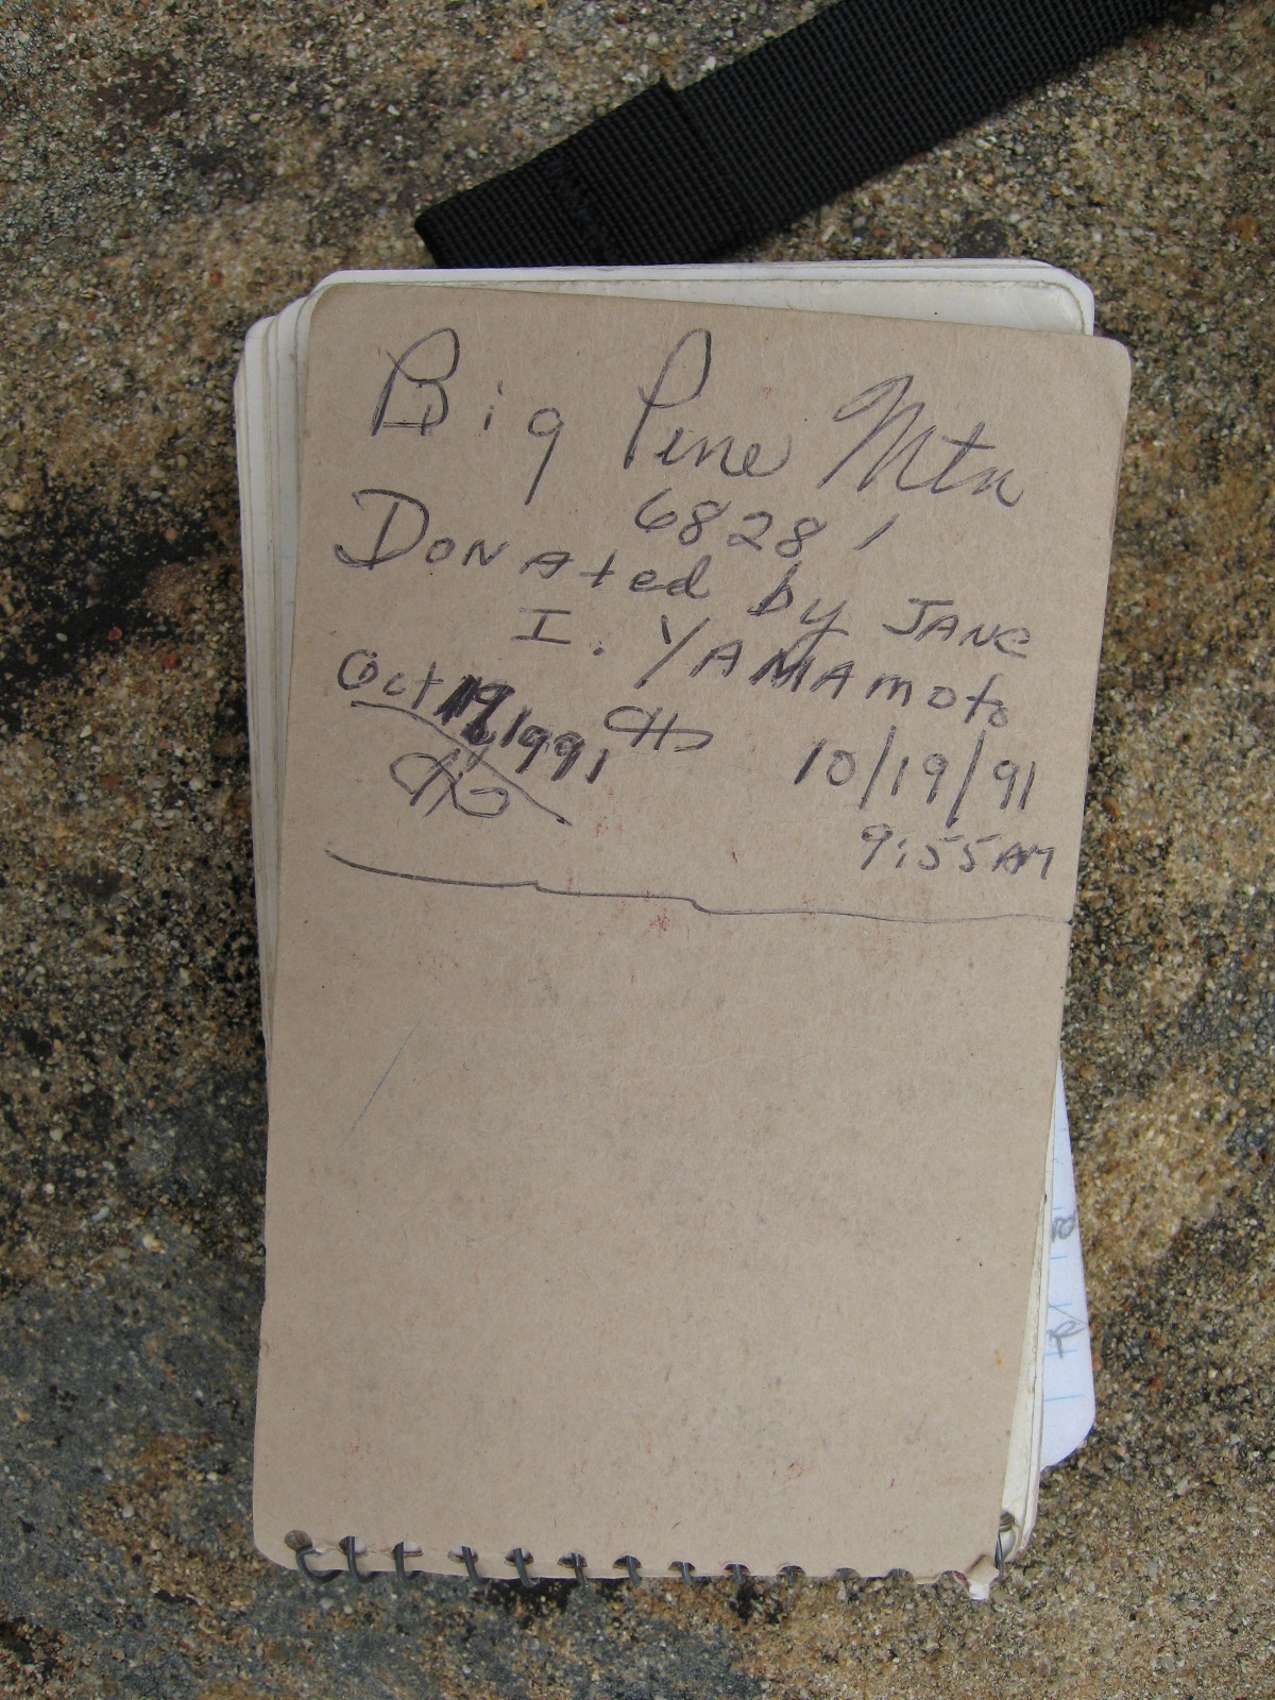 Big Pine Mtn
6828'
Donated by JANE
I. YAMAMOTO
Oct 19, 1991
10/19/91
9:55 AM